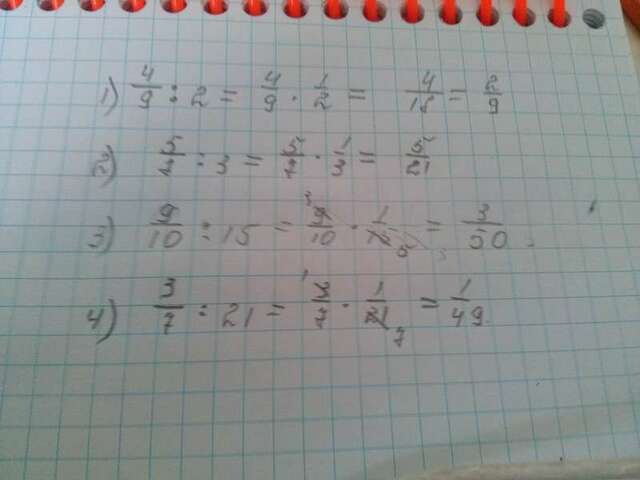 1) 4/9 : 2 = 4/9 · 1/2 = 4/18 = 2/9
2) 5/7 : 3 = 5/7 · 1/3 = 5/21
3) 9/10 : 15 = 9/10 · 1/15 = 3/50
4) 3/7 : 21 = 3/7 · 1/21 = 1/49